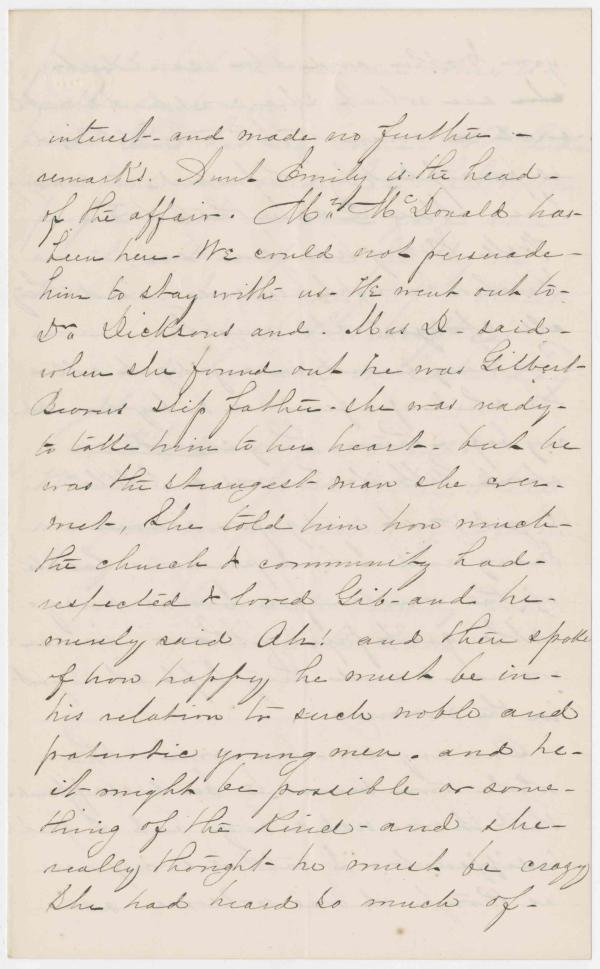 interest - and made no further -
remarks. Aunt Emily is the head -
of the affair. Mr. McDonald has
been here - We could not persuade -
him to stay with us - He went out to -
Dr. Dicksons and. Mrs D - said -
when she found out he was Gilbert -
Browns step father - she was ready -
to take him to her heart - but he
was the strangest man she ever -
met, She told him how much -
the church & community had -
respected & loved Gib - and he -
merely said Ah! and then spoke
of how happy he must be in -
his relation to such noble and
patriotic young men. and he -
it might be possible or some -
thing of the kind - and she -
really thought he must be crazy
She had heard so much of -